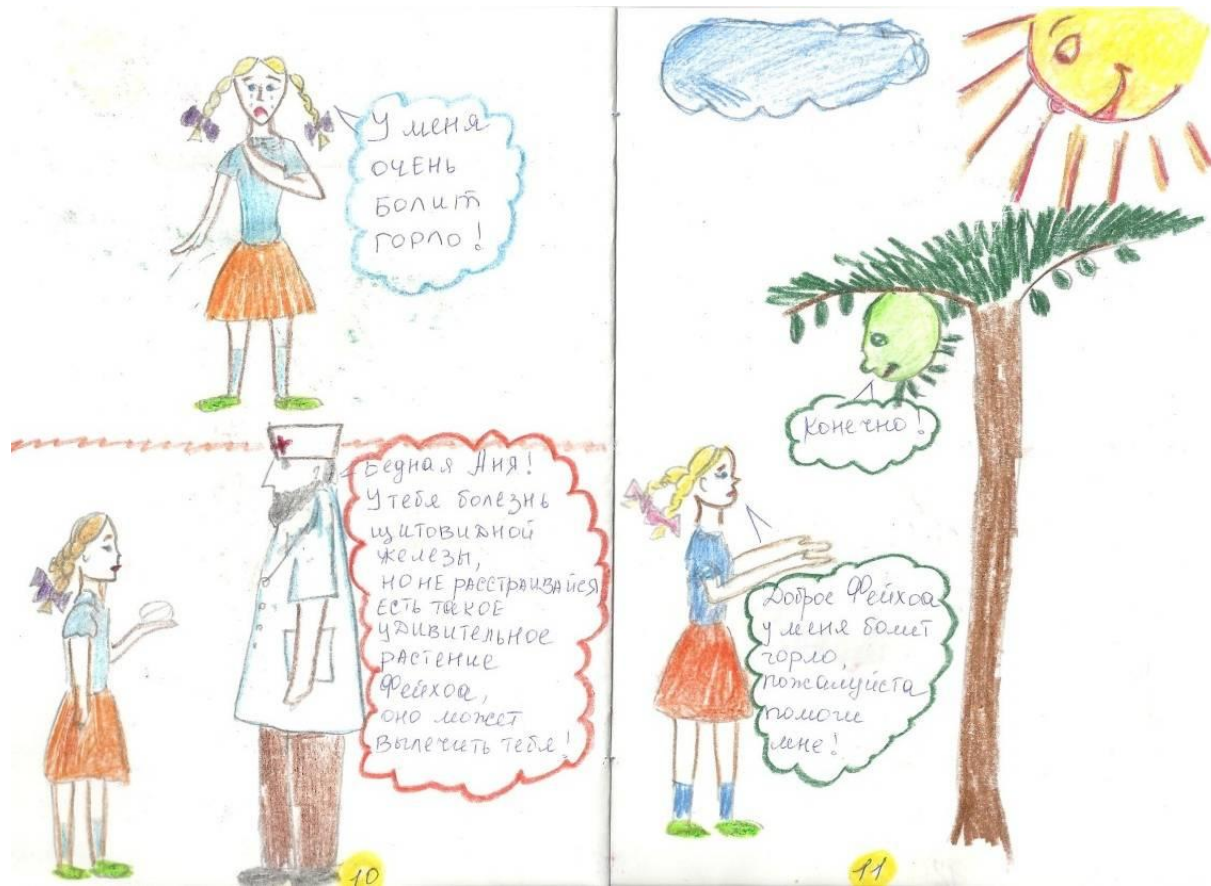 У меня
ОЧЕНЬ
БОЛИТ
ГОРЛО!
Бедная Аня!
У тебя болезнь
щитовидной
железы,
НО НЕ РАССТРАИВАЙСЯ
ЕСТЬ ТАКОЕ
УДИВИТЕЛЬНОЕ
РАСТЕНИЕ
Фейхоа,
оно может
вылечить тебя!
10
Доброе Фейхоа
у меня болит
горло,
пожалуйста
помоги
мне!
Конечно!
11